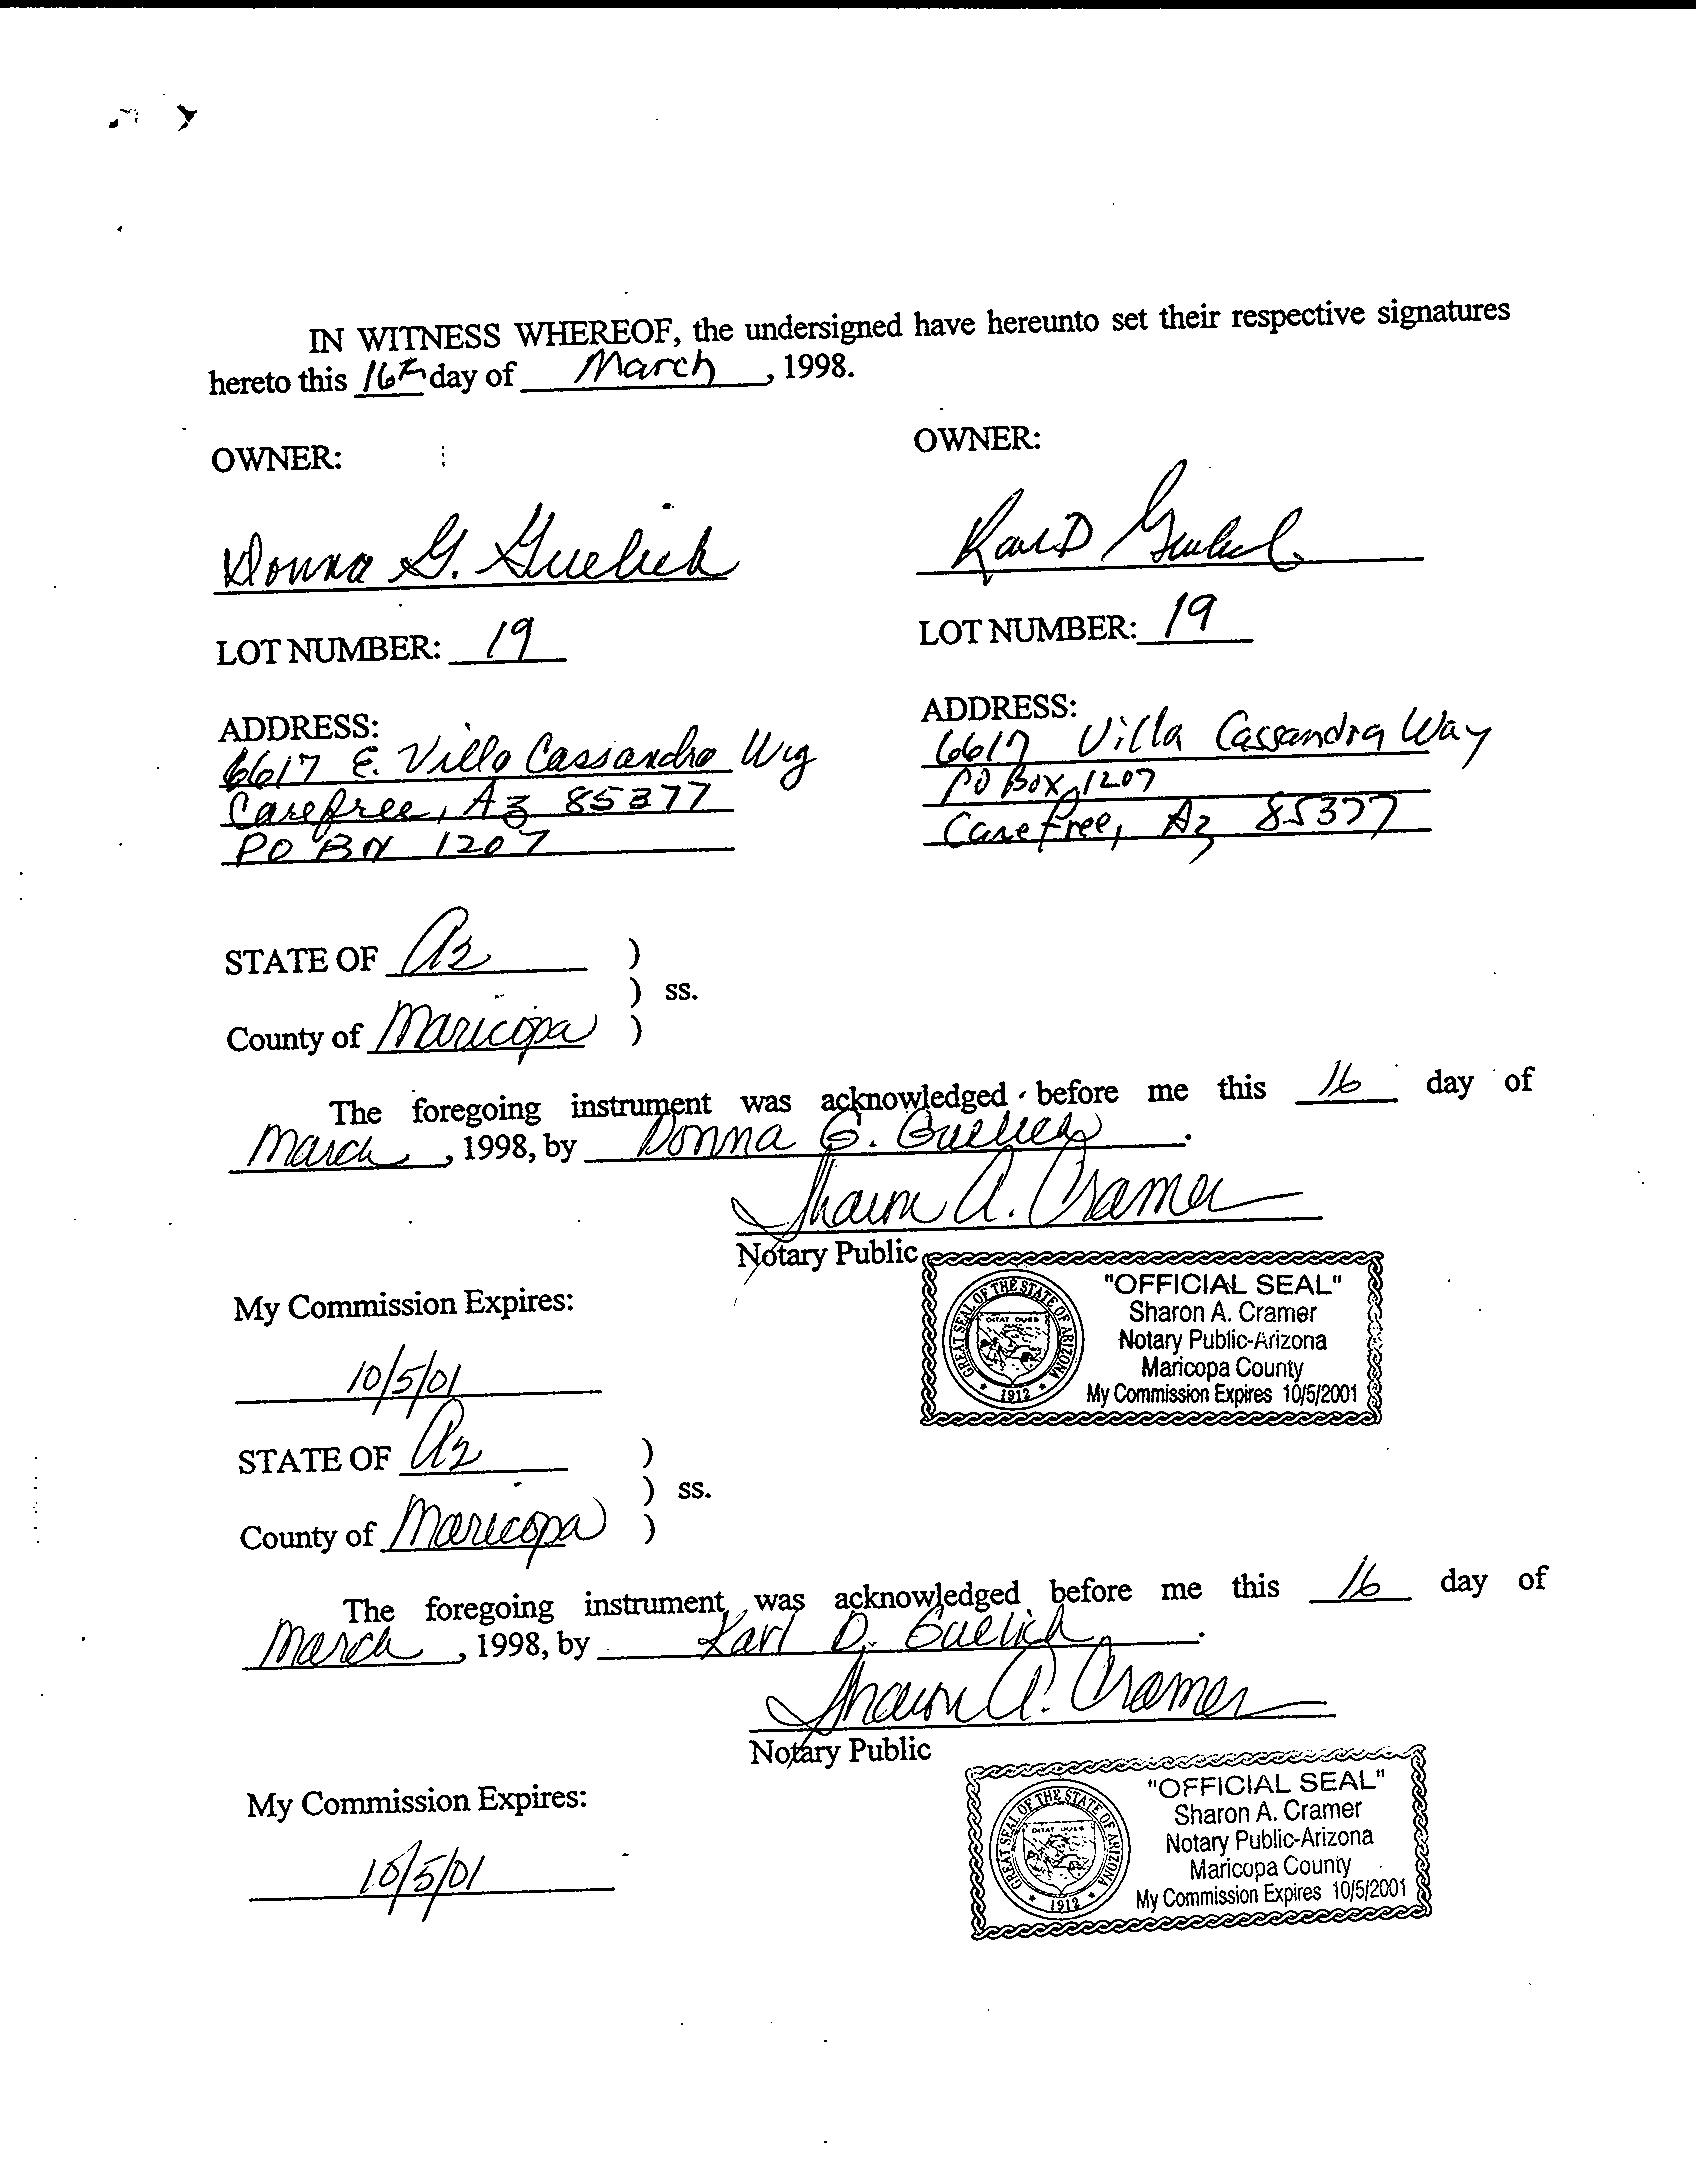 IN WITNESS WHEREOF, the undersigned have hereunto set their respective signatures
hereto this 16th day of March, 1998.
OWNER:
Donna G. Guelich
LOT NUMBER: 19
ADDRESS:
6617 E. Villa Cassandra Way
Carefree, Az 85377
PO Box 1207
OWNER:
Karl D Guelich
LOT NUMBER: 19
ADDRESS:
6617 Villa Cassandra Way
PO Box 1207
Carefree, Az 85377
STATE OF Az )
) ss.
County of Maricopa )
The foregoing instrument was acknowledged before me this 16 day of
March, 1998, by Donna G. Guelich.
Sharon A. Cramer
Notary Public
My Commission Expires:
10/5/01
"OFFICIAL SEAL"
Sharon A. Cramer
Notary Public-Arizona
Maricopa County
My Commission Expires 10/5/2001
GREAT SEAL OF THE STATE OF ARIZONA
DITAT DEUS
1912
STATE OF Az )
) ss.
County of Maricopa )
The foregoing instrument was acknowledged before me this 16 day of
March, 1998, by Karl D. Guelich.
Sharon A. Cramer
Notary Public
My Commission Expires:
10/5/01
"OFFICIAL SEAL"
Sharon A. Cramer
Notary Public-Arizona
Maricopa County
My Commission Expires 10/5/2001
GREAT SEAL OF THE STATE OF ARIZONA
DITAT DEUS
1912